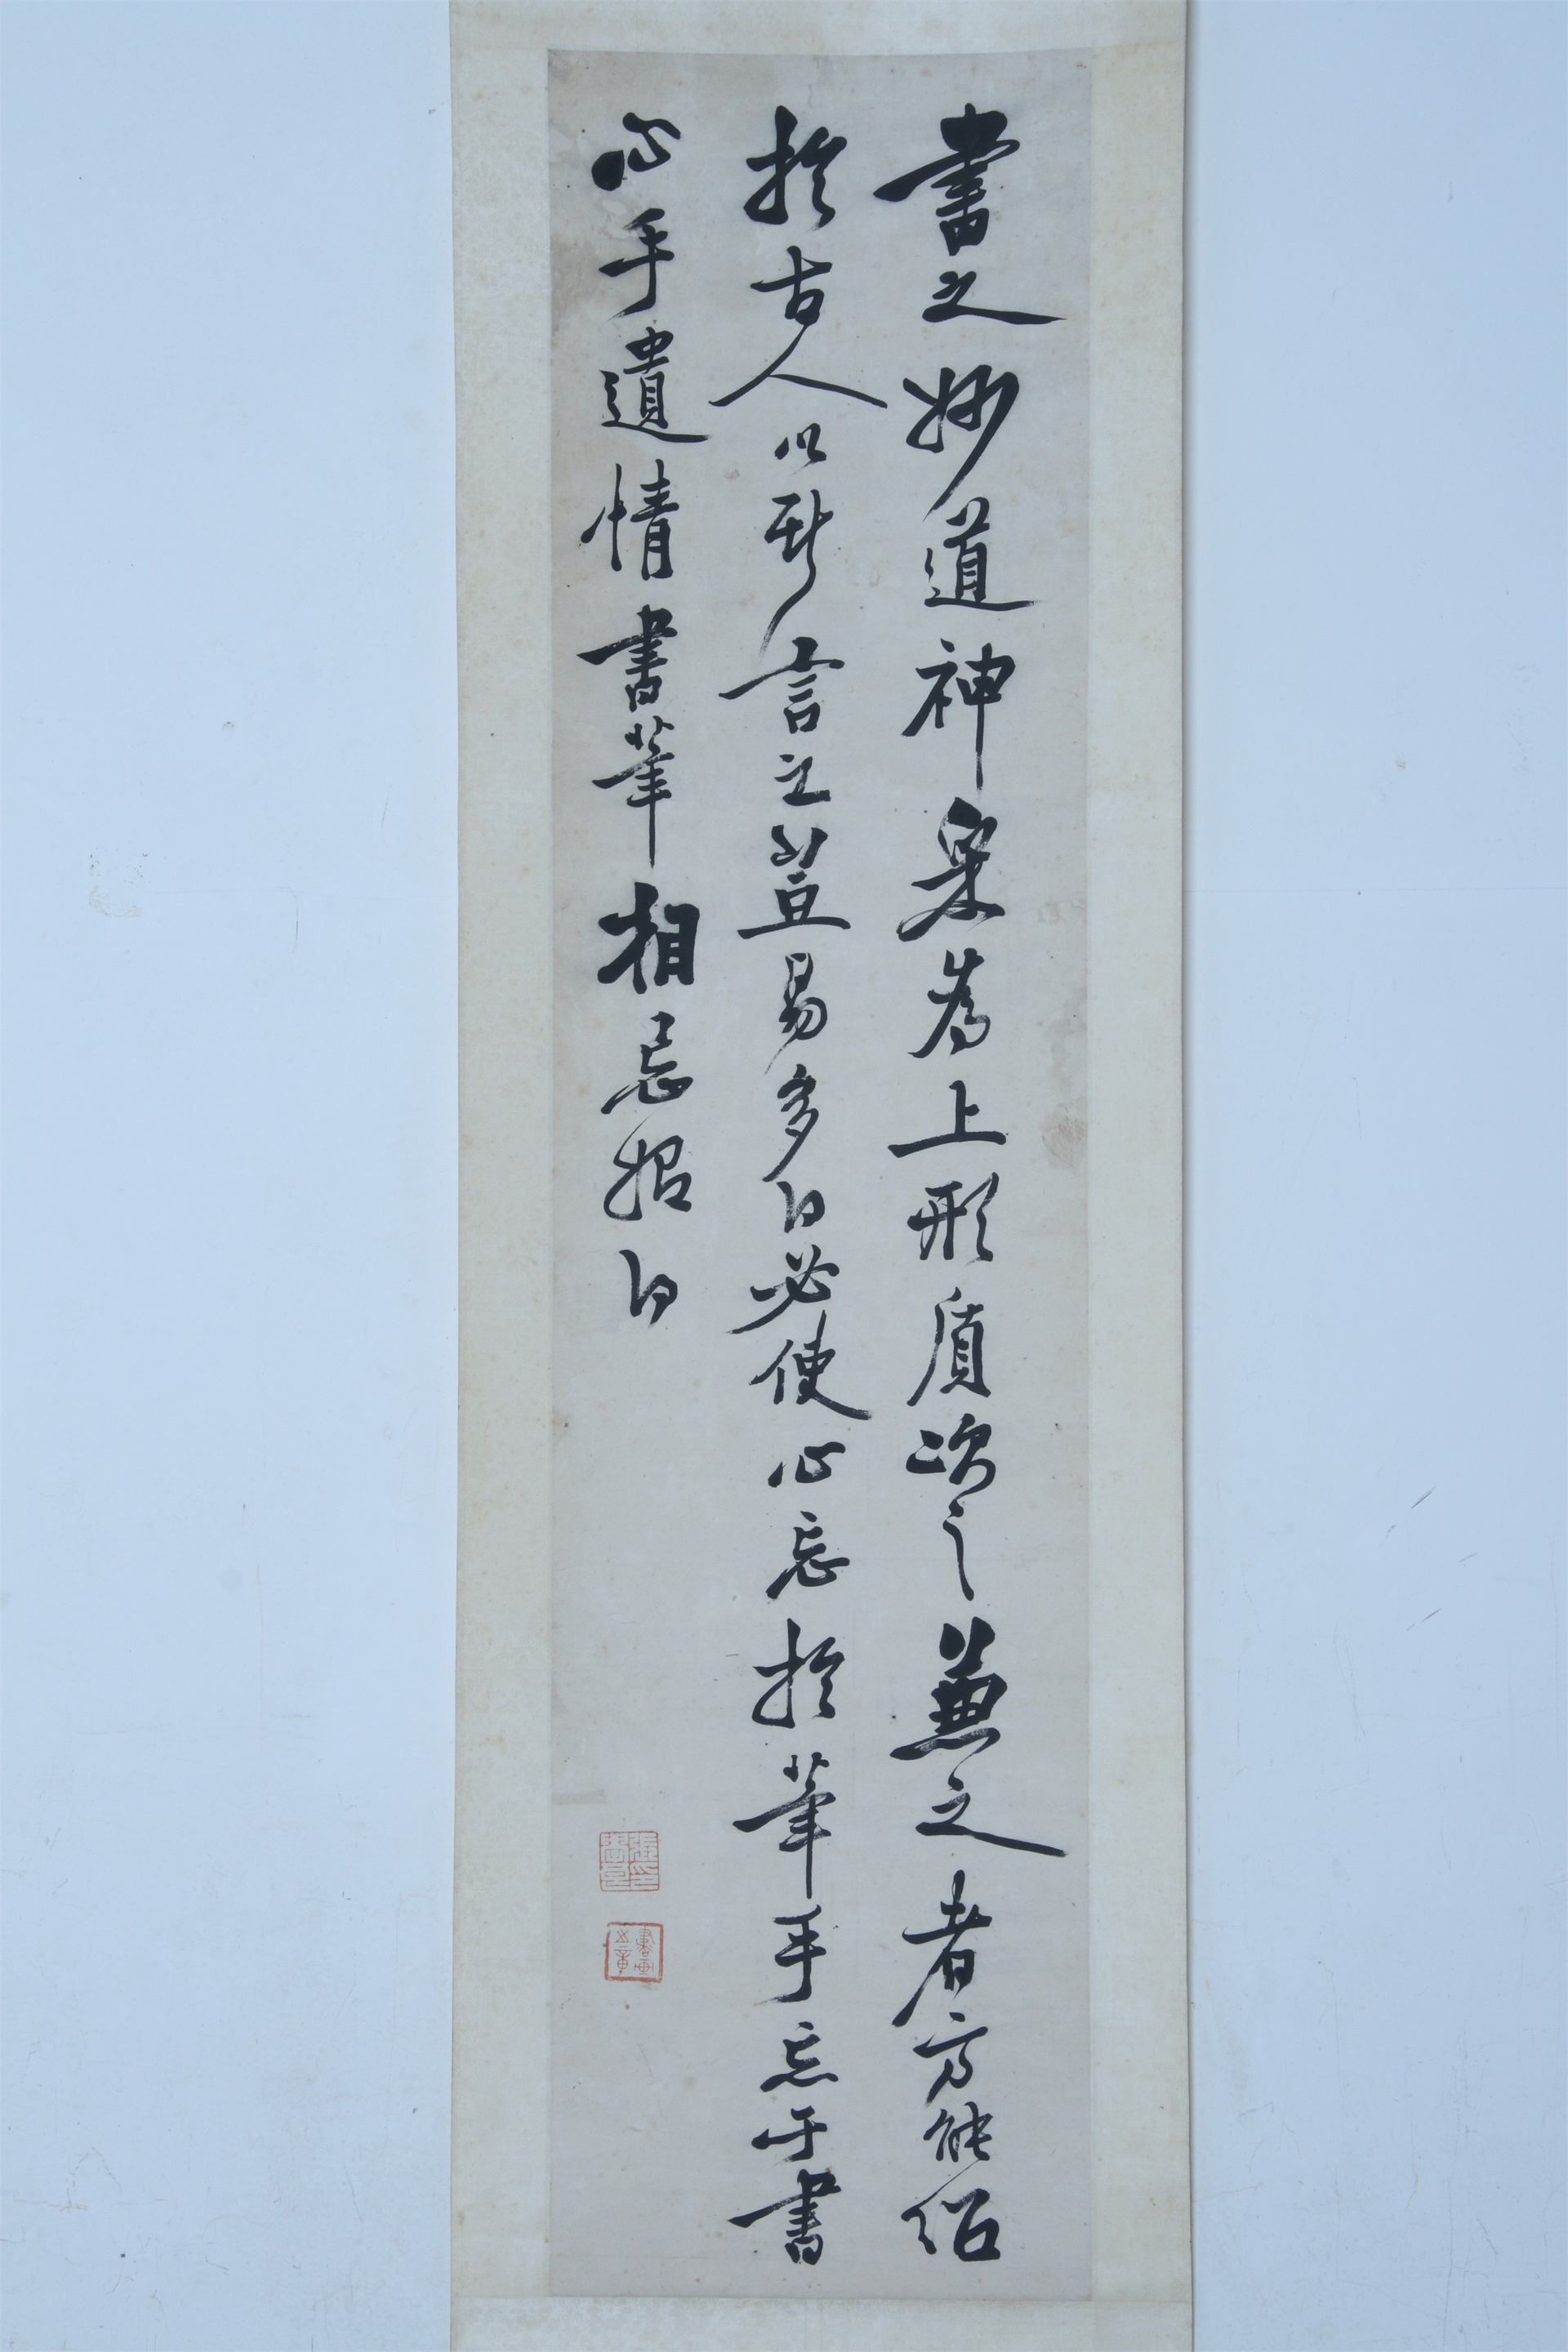 書之妙道神采為上形質次之兼之者方能紹
於古人以斯言之豈易多得必使心忘於筆手忘于書
心手遺情書筆相忘招得